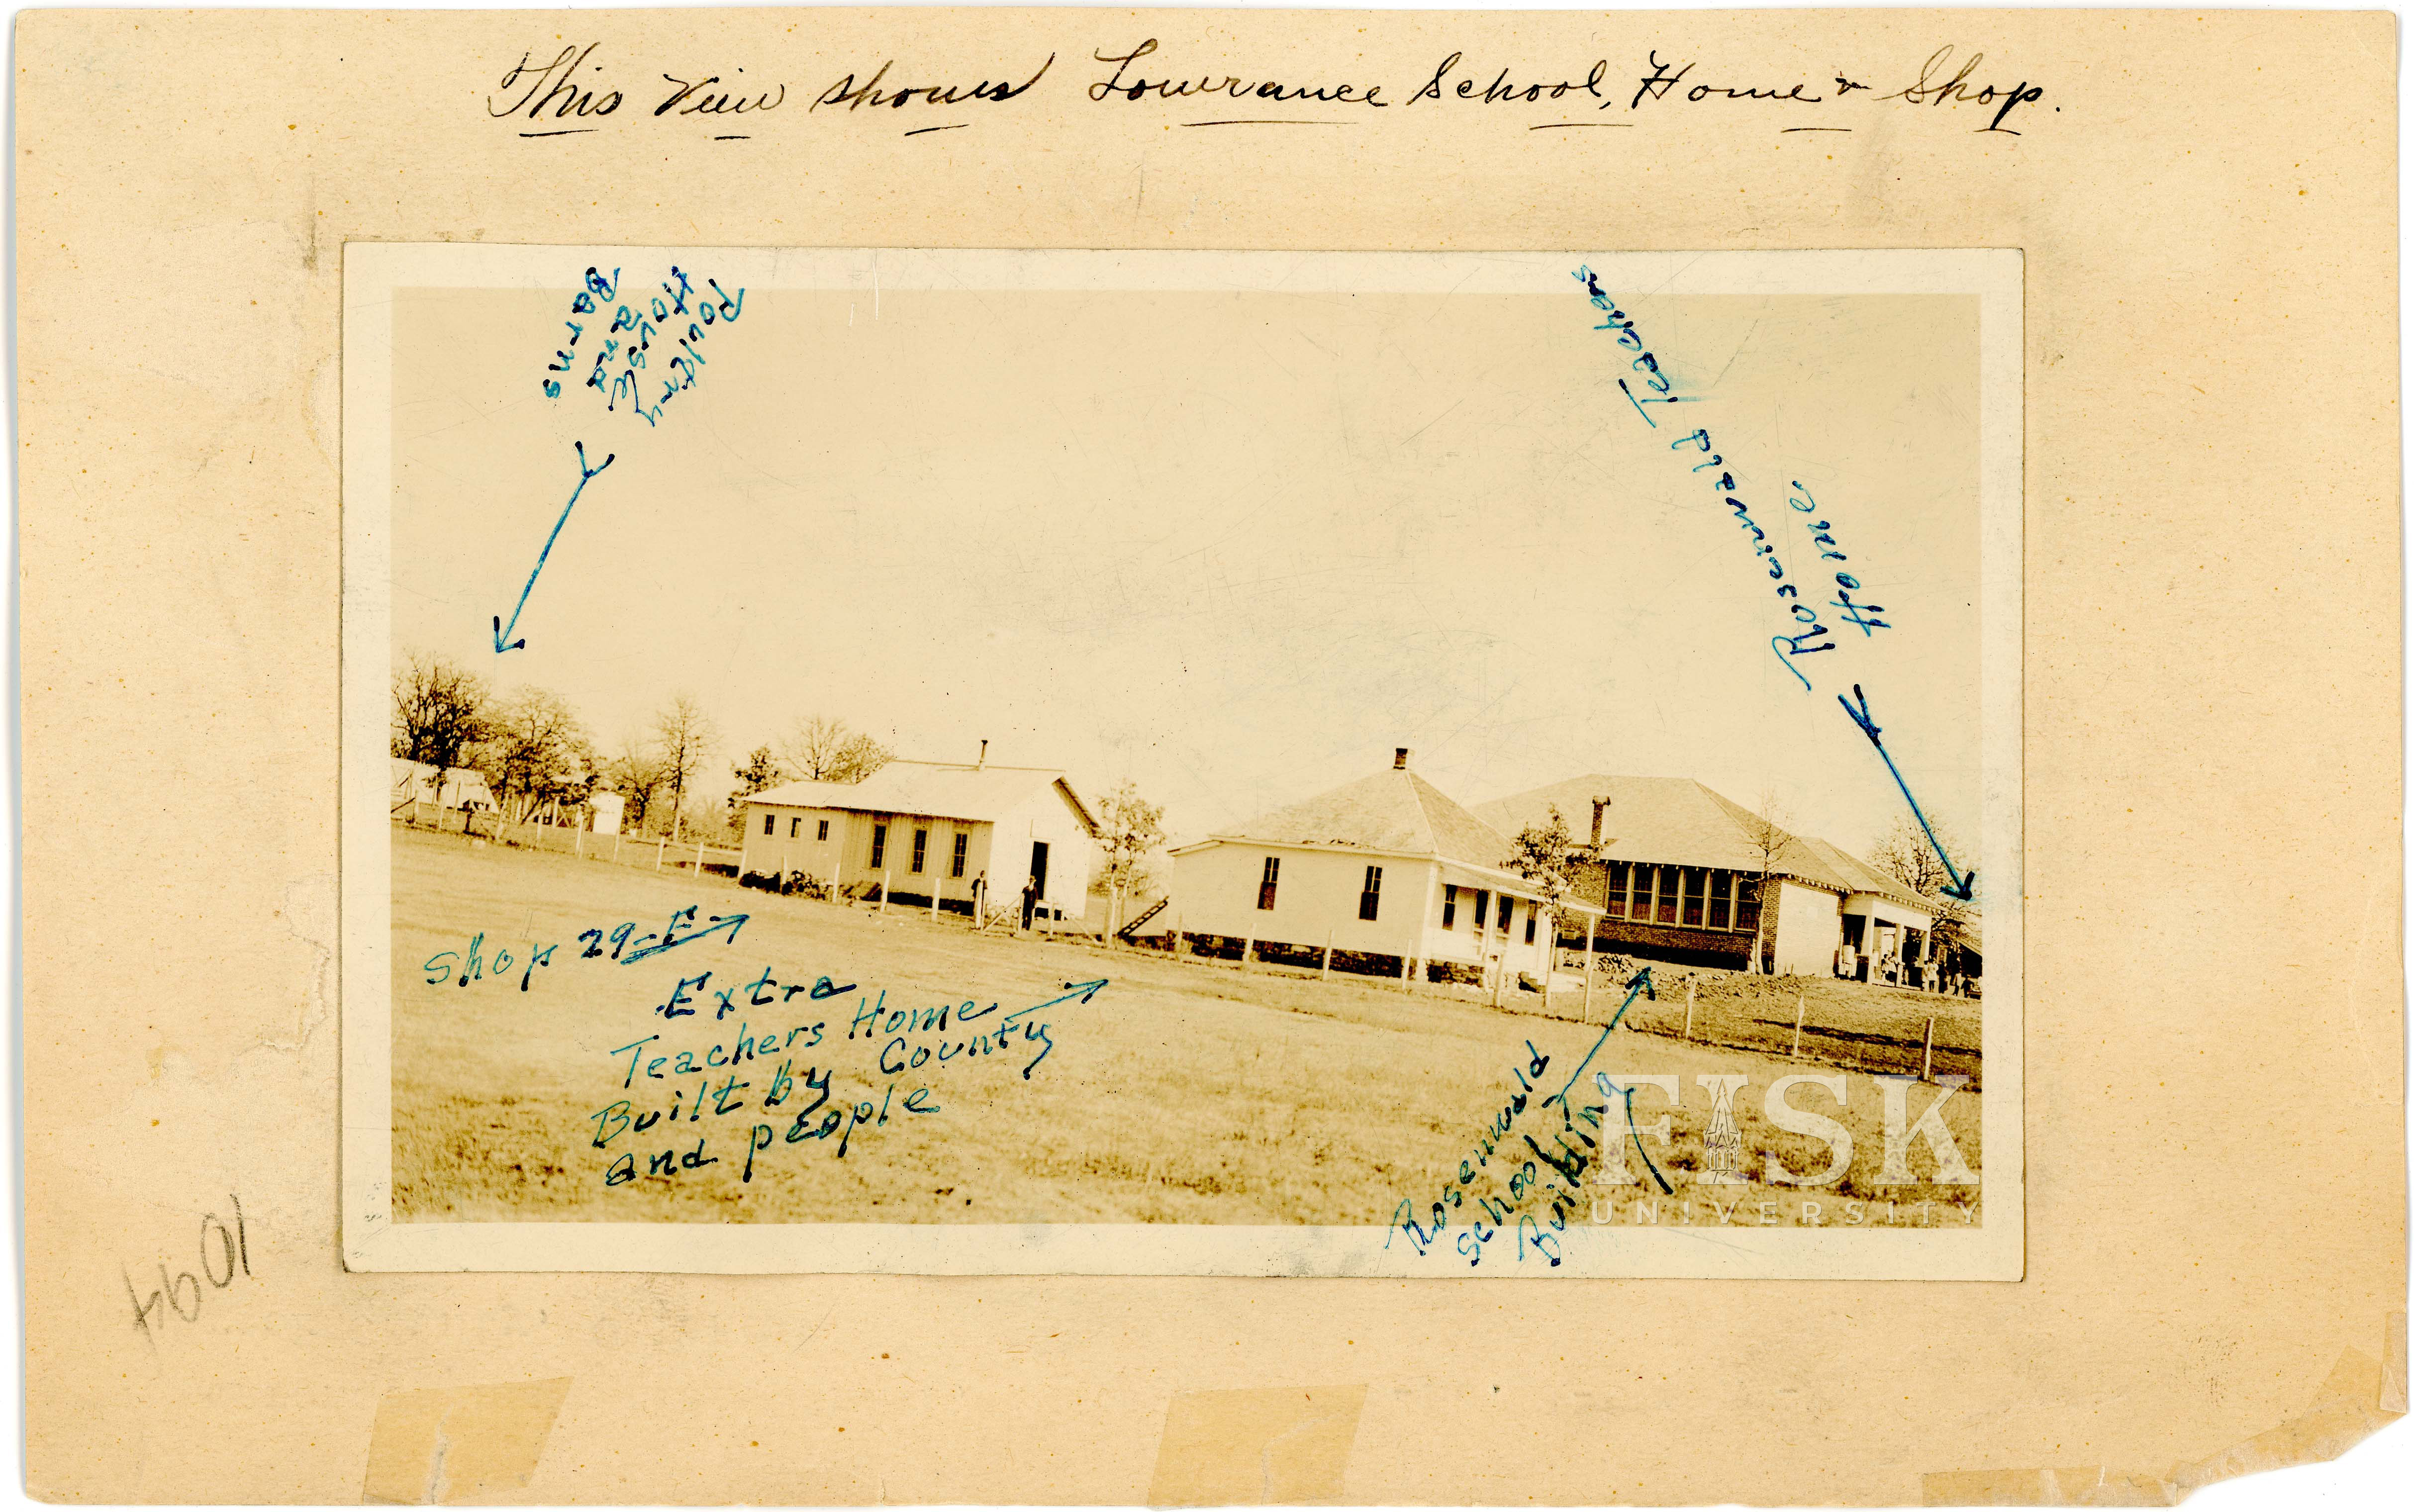 This View shows Lowrance School, Home & Shop.
Poultry
House
and
Barns
Rosenwald Teachers
Home
Shop 29-F
Extra
Teachers Home
Built by County
and people
Rosenwald
School
Building
1094
FISK
UNIVERSITY